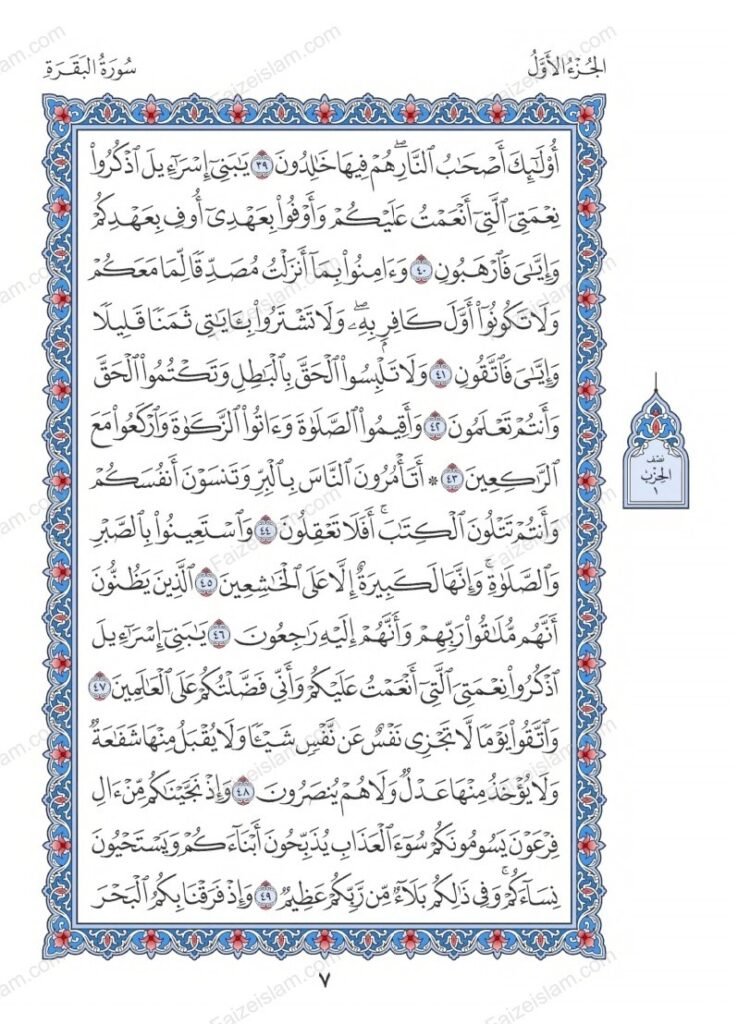 الجُزْءُ الأَوَّلُ
سُورَةُ البَقَرَةِ
أُوْلَٰٓئِكَ أَصْحَٰبُ ٱلنَّارِۖ هُمْ فِيهَا خَٰلِدُونَ ٣٩ يَٰبَنِىٓ إِسْرَٰٓءِيلَ ٱذْكُرُوا۟
نِعْمَتِىَ ٱلَّتِىٓ أَنْعَمْتُ عَلَيْكُمْ وَأَوْفُوا۟ بِعَهْدِىٓ أُوفِ بِعَهْدِكُمْ
وَإِيَّٰىَ فَٱرْهَبُونِ ٤٠ وَءَامِنُوا۟ بِمَآ أَنزَلْتُ مُصَدِّقًا لِّمَا مَعَكُمْ
وَلَا تَكُونُوٓا۟ أَوَّلَ كَافِرٍۭ بِهِۦۖ وَلَا تَشْتَرُوا۟ بِـَٔايَٰتِى ثَمَنًا قَلِيلًا
وَإِيَّٰىَ فَٱتَّقُونِ ٤١ وَلَا تَلْبِسُوا۟ ٱلْحَقَّ بِٱلْبَٰطِلِ وَتَكْتُمُوا۟ ٱلْحَقَّ
وَأَنتُمْ تَعْلَمُونَ ٤٢ وَأَقِيمُوا۟ ٱلصَّلَوٰةَ وَءَاتُوا۟ ٱلزَّكَوٰةَ وَٱرْكَعُوا۟ مَعَ
ٱلرَّٰكِعِينَ ٤٣ * أَتَأْمُرُونَ ٱلنَّاسَ بِٱلْبِرِّ وَتَنسَوْنَ أَنفُسَكُمْ
نصف
الحِزْبِ
١
وَأَنتُمْ تَتْلُونَ ٱلْكِتَٰبَۚ أَفَلَا تَعْقِلُونَ ٤٤ وَٱسْتَعِينُوا۟ بِٱلصَّبْرِ
وَٱلصَّلَوٰةِۚ وَإِنَّهَا لَكَبِيرَةٌ إِلَّا عَلَى ٱلْخَٰشِعِينَ ٤٥ ٱلَّذِينَ يَظُنُّونَ
أَنَّهُم مُّلَٰقُوا۟ رَبِّهِمْ وَأَنَّهُمْ إِلَيْهِ رَٰجِعُونَ ٤٦ يَٰبَنِىٓ إِسْرَٰٓءِيلَ
ٱذْكُرُوا۟ نِعْمَتِىَ ٱلَّتِىٓ أَنْعَمْتُ عَلَيْكُمْ وَأَنِّى فَضَّلْتُكُمْ عَلَى ٱلْعَٰلَمِينَ ٤٧
وَٱتَّقُوا۟ يَوْمًا لَّا تَجْزِى نَفْسٌ عَن نَّفْسٍ شَيْـًٔا وَلَا يُقْبَلُ مِنْهَا شَفَٰعَةٌ
وَلَا يُؤْخَذُ مِنْهَا عَدْلٌ وَلَا هُمْ يُنصَرُونَ ٤٨ وَإِذْ نَجَّيْنَٰكُم مِّنْ ءَالِ
فِرْعَوْنَ يَسُومُونَكُمْ سُوٓءَ ٱلْعَذَابِ يُذَبِّحُونَ أَبْنَآءَكُمْ وَيَسْتَحْيُونَ
نِسَآءَكُمْۚ وَفِى ذَٰلِكُم بَلَآءٌ مِّن رَّبِّكُمْ عَظِيمٌ ٤٩ وَإِذْ فَرَقْنَا بِكُمُ ٱلْبَحْرَ
٧
Faizeislam.com